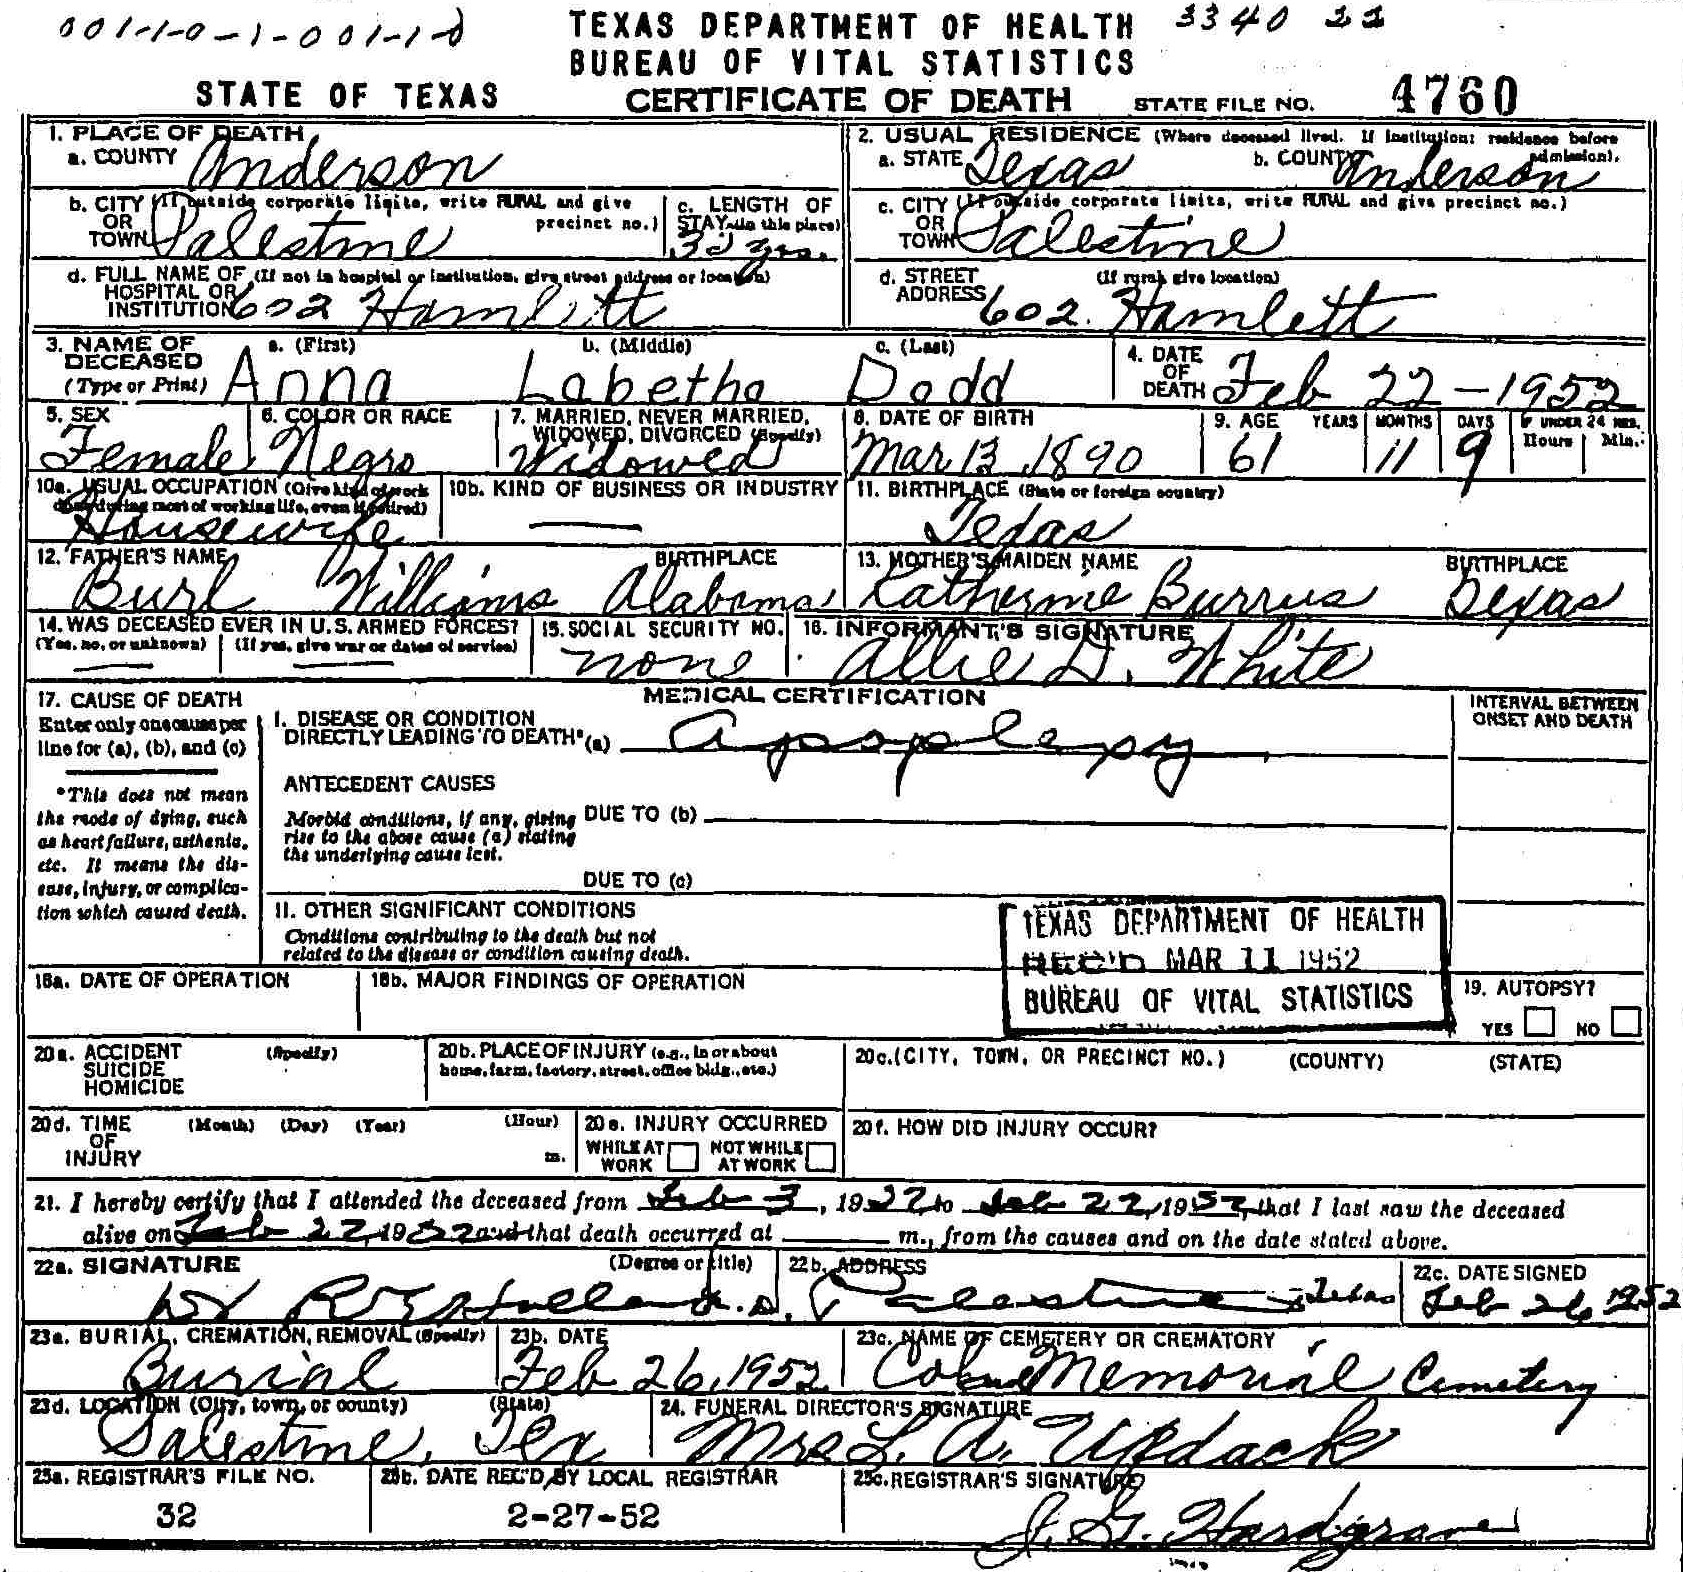 001-1-0-1-001-1-0
TEXAS DEPARTMENT OF HEALTH 3340 22
BUREAU OF VITAL STATISTICS
STATE OF TEXAS CERTIFICATE OF DEATH STATE FILE NO. 4760
1. PLACE OF DEATH
a. COUNTY Anderson
2. USUAL RESIDENCE (Where deceased lived. If institution: residence before admission).
a. STATE Texas b. COUNTY Anderson
b. CITY (If outside corporate limits, write RURAL and give precinct no.)
OR
TOWN Palestine
c. LENGTH OF
STAY (in this place)
32 yrs.
c. CITY (If outside corporate limits, write RURAL and give precinct no.)
OR
TOWN Palestine
d. FULL NAME OF (If not in hospital or institution, give street address or location)
HOSPITAL OR
INSTITUTION 602 Hamlett
d. STREET (If rural, give location)
ADDRESS 602 Hamlett
3. NAME OF DECEASED (Type or Print)
a. (First) b. (Middle) c. (Last)
Anna Labetha Dodd
4. DATE OF DEATH Feb 22-1952
5. SEX
Female
6. COLOR OR RACE
Negro
7. MARRIED, NEVER MARRIED,
WIDOWED, DIVORCED (Specify)
Widowed
8. DATE OF BIRTH
Mar 13, 1890
9. AGE YEARS MONTHS DAYS IF UNDER 24 HRS. Hours Min.
61 11 9
10a. USUAL OCCUPATION (Give kind of work
done during most of working life, even if retired)
Housewife
10b. KIND OF BUSINESS OR INDUSTRY
—
11. BIRTHPLACE (State or foreign country)
Texas
12. FATHER'S NAME BIRTHPLACE
Burl Williams Alabama
13. MOTHER'S MAIDEN NAME BIRTHPLACE
Katherine Burrus Texas
14. WAS DECEASED EVER IN U.S. ARMED FORCES?
(Yes, no, or unknown) (If yes, give war or dates of service)
15. SOCIAL SECURITY NO.
none
16. INFORMANT'S SIGNATURE
Allie D. White
17. CAUSE OF DEATH
Enter only one cause per
line for (a), (b), and (c)
*This does not mean
the mode of dying, such
as heart failure, asthenia,
etc. It means the dis-
ease, injury, or complica-
tion which caused death.
MEDICAL CERTIFICATION
INTERVAL BETWEEN
ONSET AND DEATH
I. DISEASE OR CONDITION
DIRECTLY LEADING TO DEATH* (a) Apoplexy
ANTECEDENT CAUSES
Morbid conditions, if any, giving
rise to the above cause (a) stating
the underlying cause last.
DUE TO (b)
DUE TO (c)
II. OTHER SIGNIFICANT CONDITIONS
Conditions contributing to the death but not
related to the disease or condition causing death.
TEXAS DEPARTMENT OF HEALTH
REC'D MAR 11 1952
BUREAU OF VITAL STATISTICS
18a. DATE OF OPERATION
18b. MAJOR FINDINGS OF OPERATION
19. AUTOPSY?
YES NO
20a. ACCIDENT (Specify)
SUICIDE
HOMICIDE
20b. PLACE OF INJURY (e.g., in or about
home, farm, factory, street, office bldg., etc.)
20c. (CITY, TOWN, OR PRECINCT NO.) (COUNTY) (STATE)
20d. TIME (Month) (Day) (Year) (Hour)
OF
INJURY m.
20e. INJURY OCCURRED
WHILE AT WORK NOT WHILE AT WORK
20f. HOW DID INJURY OCCUR?
21. I hereby certify that I attended the deceased from Feb 3, 1952, to Feb 22, 1952, that I last saw the deceased
alive on Feb 22, 1952 and that death occurred at m., from the causes and on the date stated above.
22a. SIGNATURE (Degree or title)
22b. ADDRESS
Palestine, Texas
22c. DATE SIGNED
Feb 26 1952
23a. BURIAL, CREMATION, REMOVAL (Specify)
Burial
23b. DATE
Feb 26, 1952
23c. NAME OF CEMETERY OR CREMATORY
Memorial Cemetery
23d. LOCATION (City, town, or county) (State)
Palestine, Tex
24. FUNERAL DIRECTOR'S SIGNATURE
Mrs L. A. Updack
25a. REGISTRAR'S FILE NO.
32
25b. DATE REC'D BY LOCAL REGISTRAR
2-27-52
25c. REGISTRAR'S SIGNATURE
J. G. Hardgrave